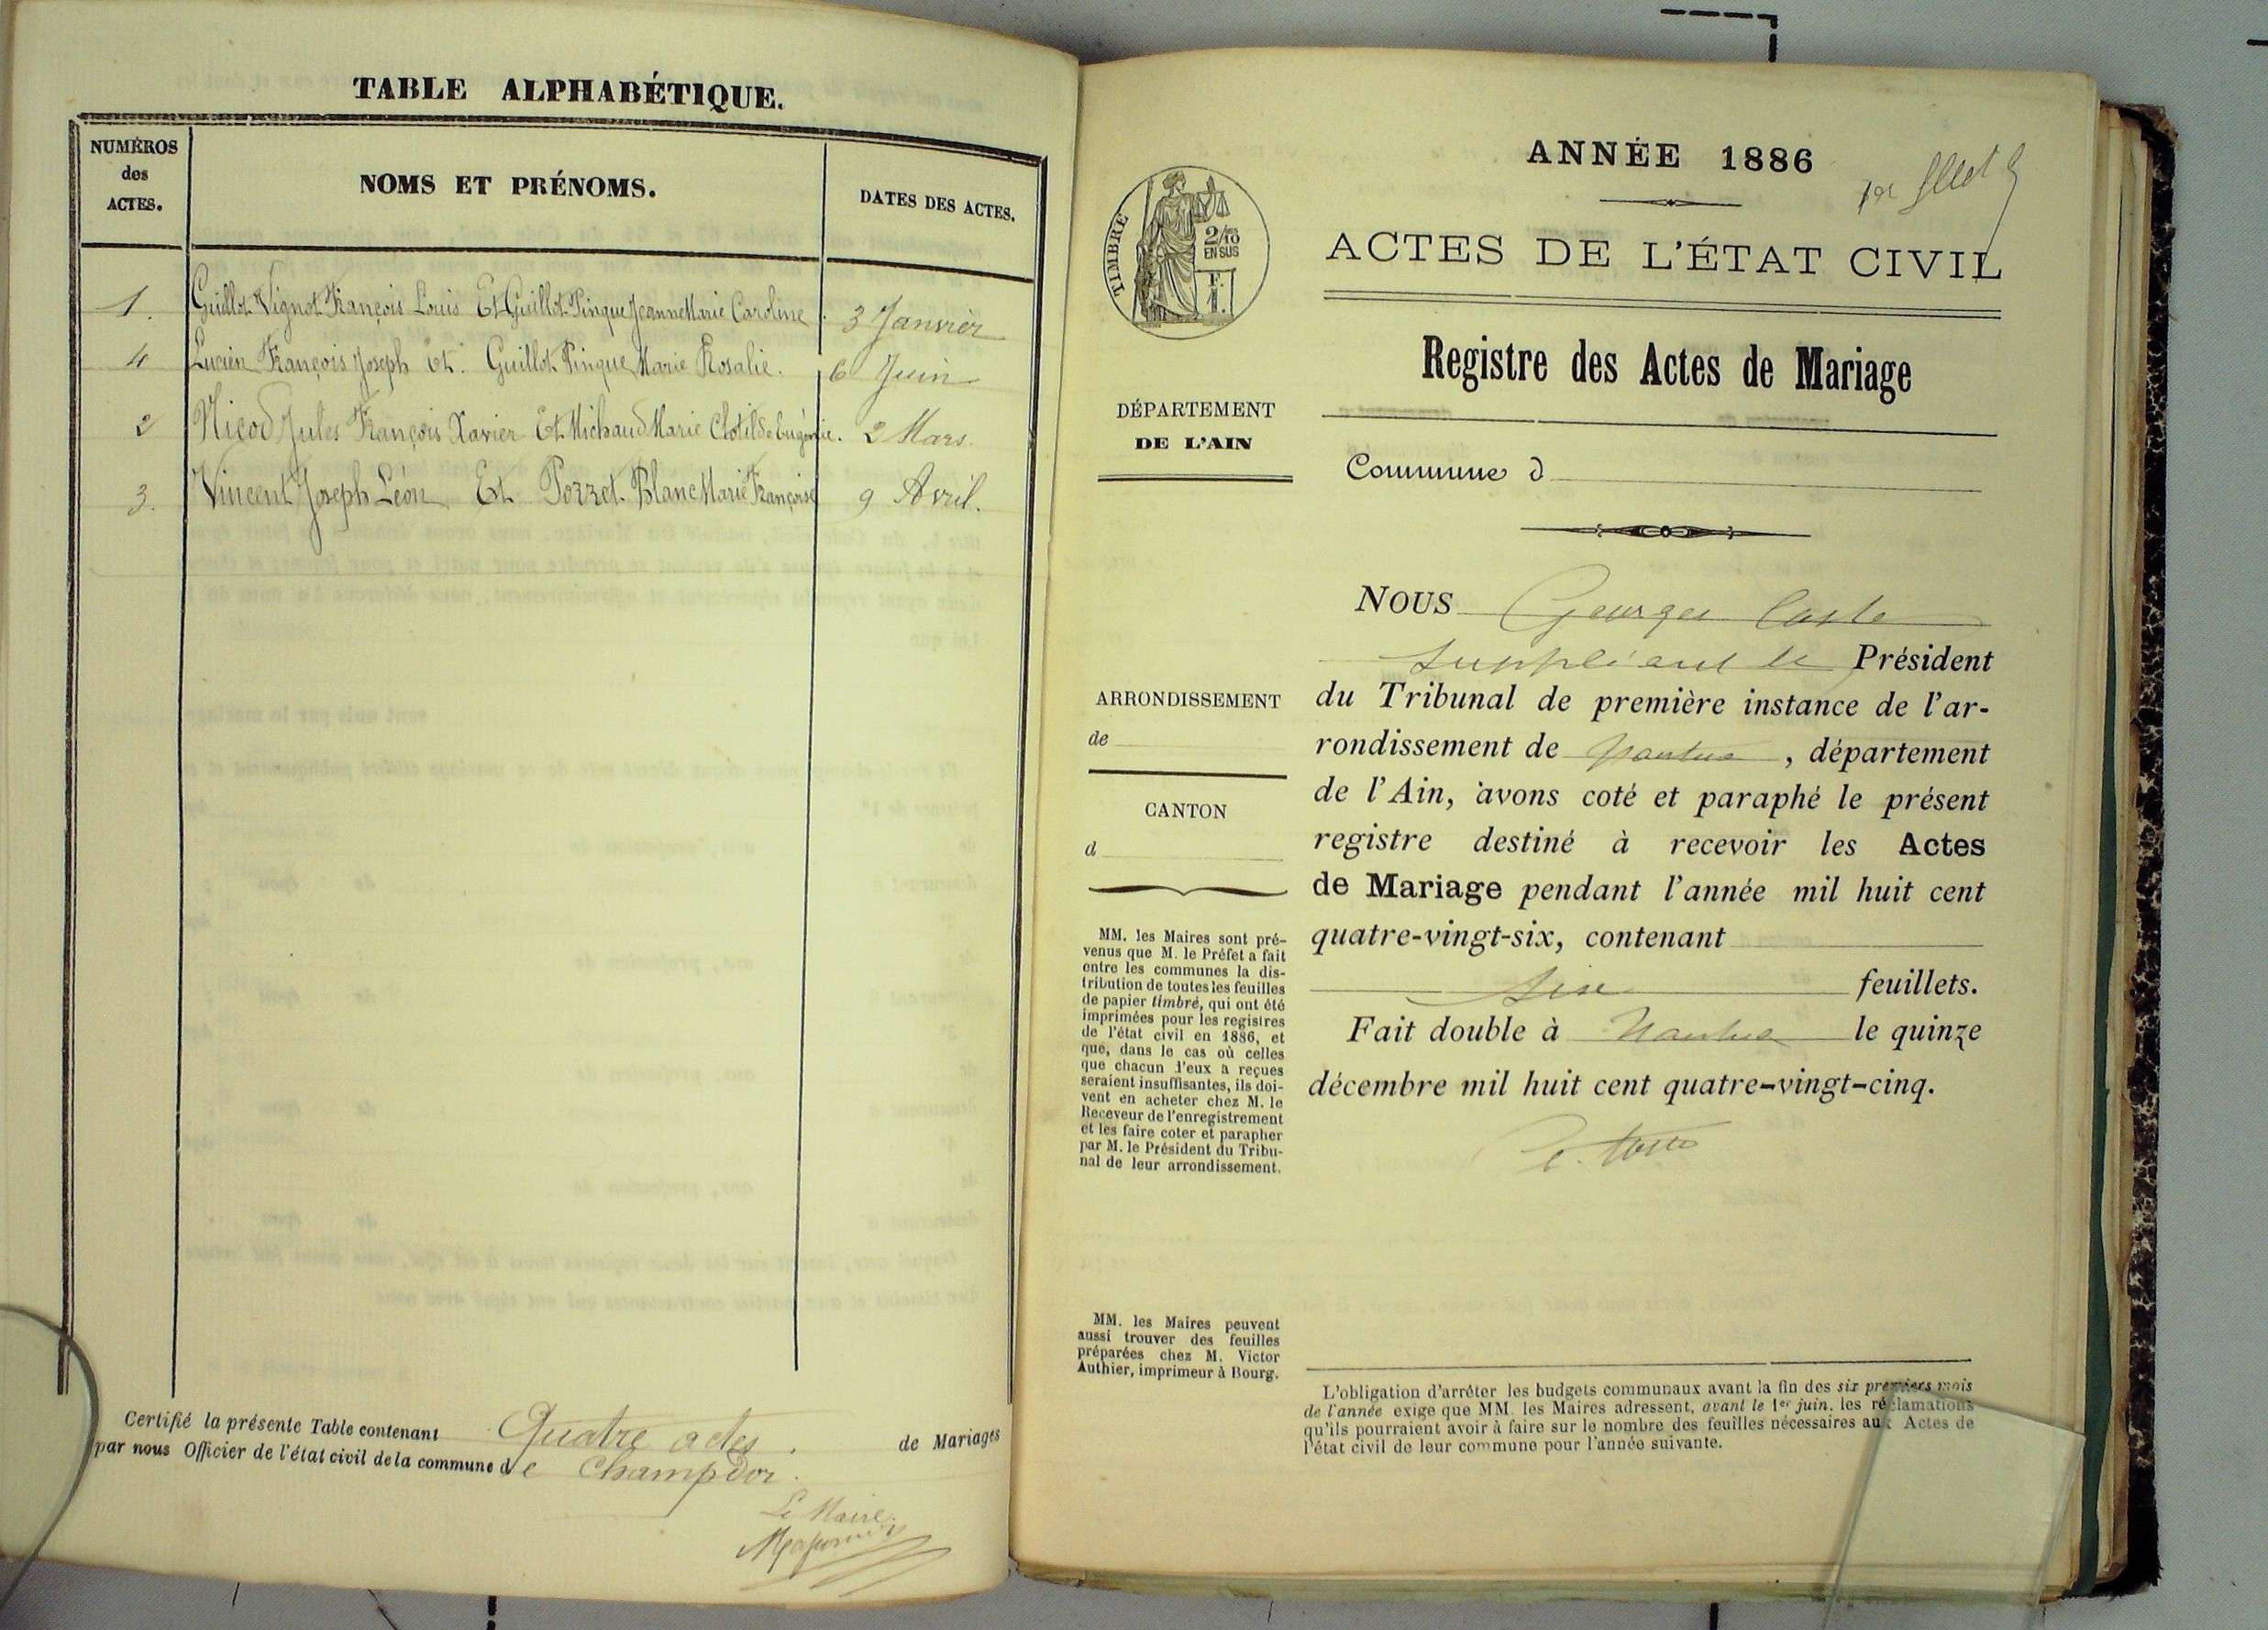 TABLE ALPHABÉTIQUE.
NUMÉROS
des
ACTES.
NOMS ET PRÉNOMS.
DATES DES ACTES.
1. Guillot Vignot François Louis Et Guillot Pinque Jeanne Marie Caroline 3 Janvier
4 Lucien François Joseph Et Guillot Pinque Marie Rosalie. 6 Juin
2 Nicod Jules François Xavier Et Michaud Marie Clotilde Eugénie. 2 Mars.
3. Vincent Joseph Léon Et Pozzet Blanc Marie Françoise 9 Avril.
Certifié la présente Table contenant Quatre actes. de Mariages
par nous Officier de l'état civil de la commune de Champdor.
Le Maire
ANNÉE 1886
1er
TIMBRE
2/10
EN SUS
F.
1.
ACTES DE L'ÉTAT CIVIL
Registre des Actes de Mariage
DÉPARTEMENT
DE L'AIN
Commune d
ARRONDISSEMENT
de
CANTON
d
MM. les Maires sont pré-
venus que M. le Préfet a fait
entre les communes la dis-
tribution de toutes les feuilles
de papier timbré, qui ont été
imprimées pour les registres
de l'état civil en 1886, et
que, dans le cas où celles
que chacun d'eux a reçues
seraient insuffisantes, ils doi-
vent en acheter chez M. le
Receveur de l'enregistrement
et les faire coter et parapher
par M. le Président du Tribu-
nal de leur arrondissement.
MM. les Maires peuvent
aussi trouver des feuilles
préparées chez M. Victor
Authier, imprimeur à Bourg.
NOUS Georges Coste
suppléant le Président
du Tribunal de première instance de l'ar-
rondissement de Nantua, département
de l'Ain, avons coté et paraphé le présent
registre destiné à recevoir les Actes
de Mariage pendant l'année mil huit cent
quatre-vingt-six, contenant
six feuillets.
Fait double à Nantua le quinze
décembre mil huit cent quatre-vingt-cinq.
G. Coste
L'obligation d'arrêter les budgets communaux avant la fin des six premiers mois
de l'année exige que MM. les Maires adressent, avant le 1er juin, les réclamations
qu'ils pourraient avoir à faire sur le nombre des feuilles nécessaires aux Actes de
l'état civil de leur commune pour l'année suivante.